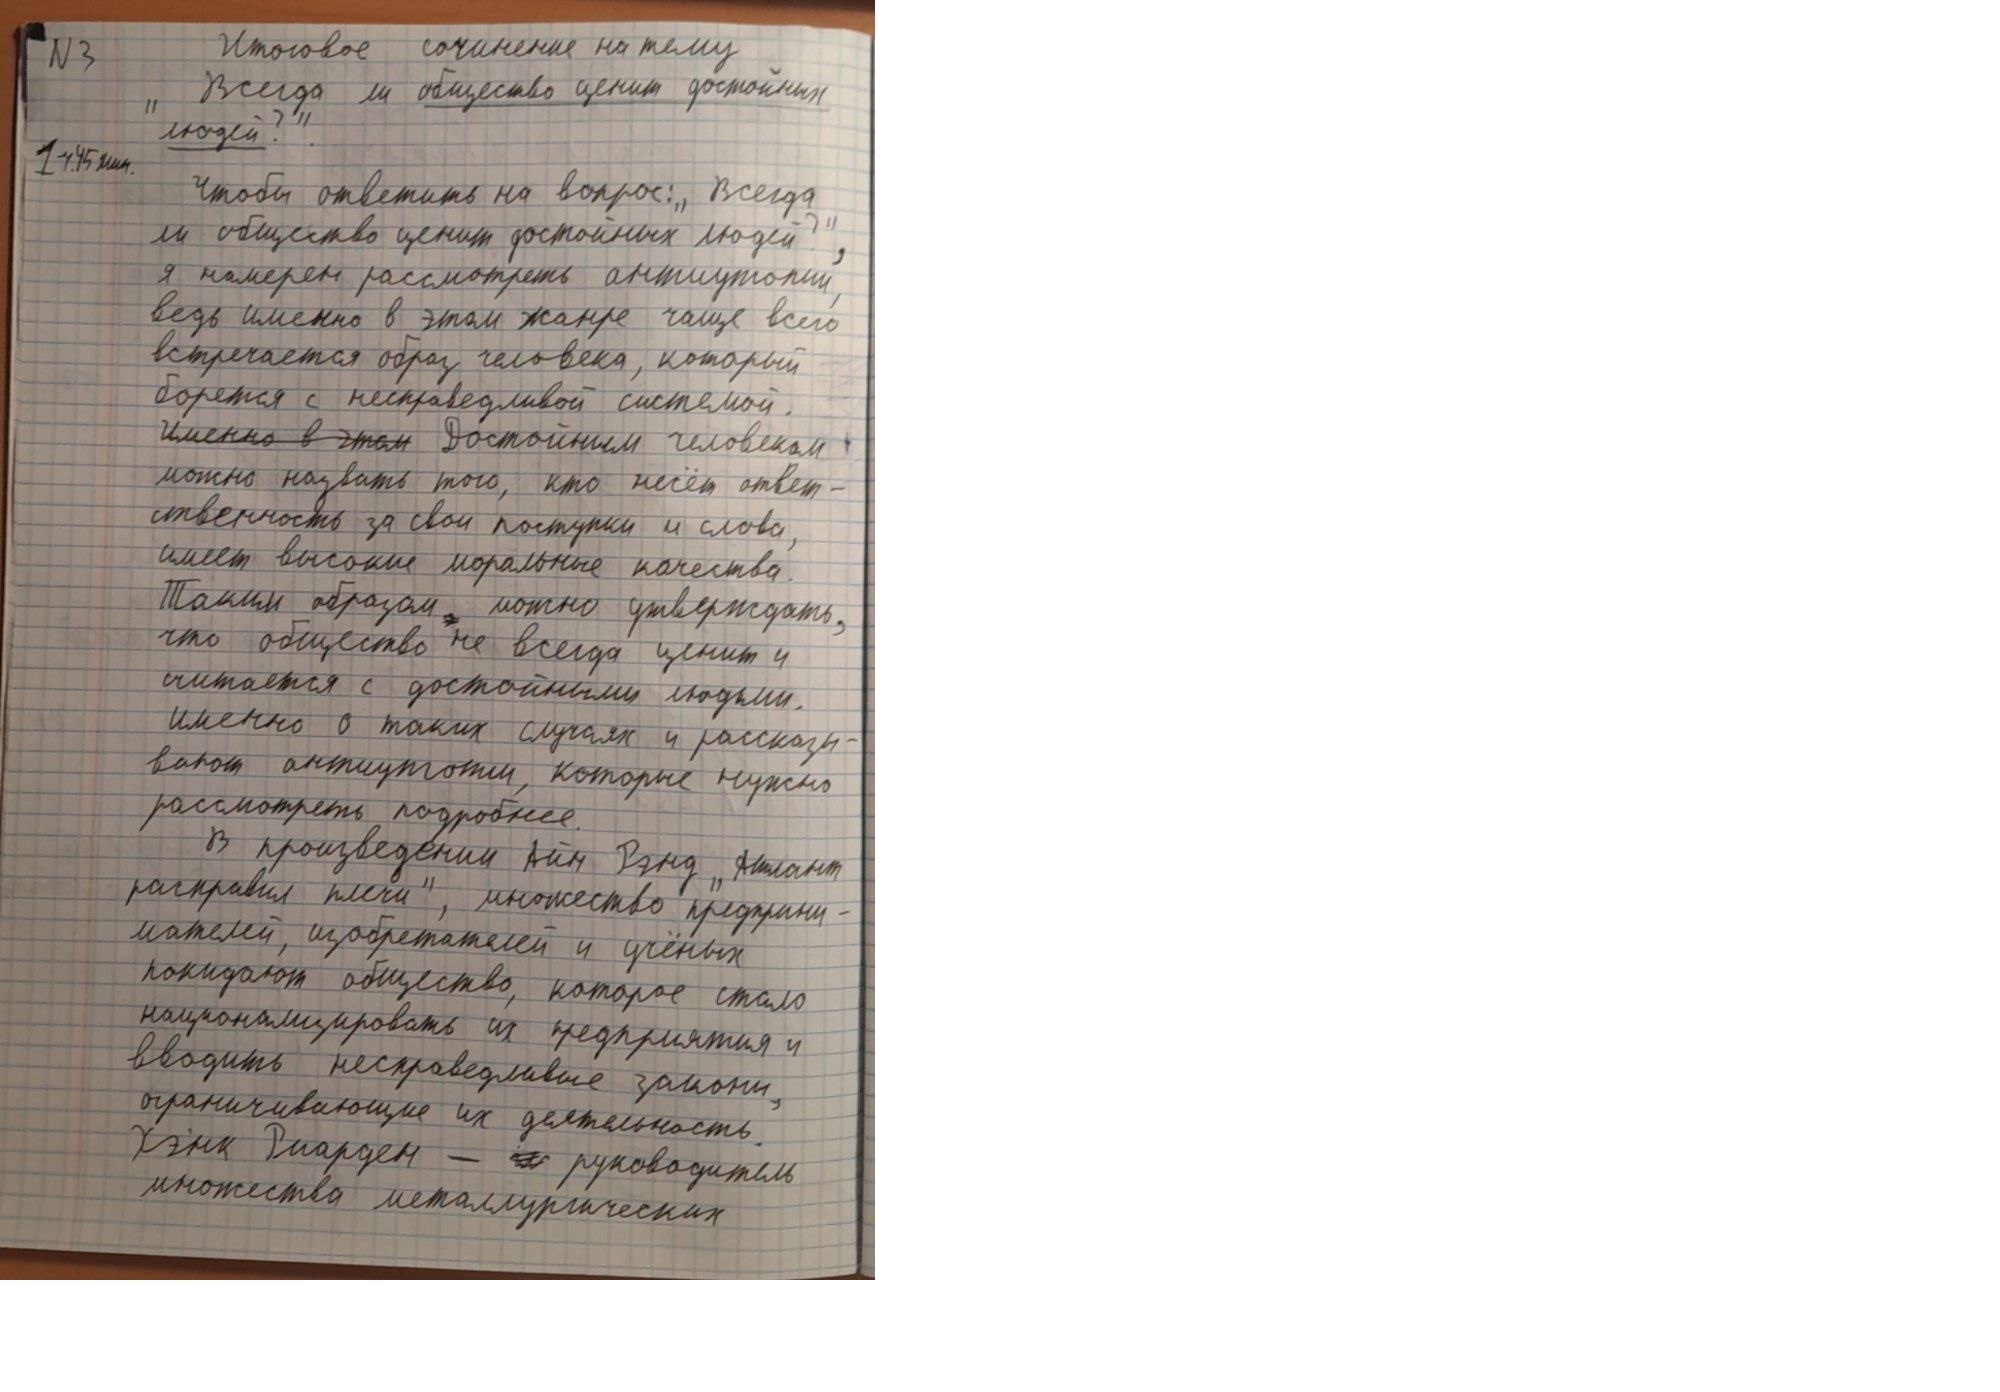 N3 Итоговое сочинение на тему
„Всегда ли общество ценит достойных
людей?".
1 ч.45 мин.
Чтобы ответить на вопрос: „Всегда
ли общество ценит достойных людей?",
я намерен рассмотреть антиутопии,
ведь именно в этом жанре чаще всего
встречается образ человека, который
борется с несправедливой системой.
Именно в этом Достойным человеком
можно назвать того, кто несёт ответ-
ственность за свои поступки и слова,
имеет высокие моральные качества.
Таким образом, можно утверждать,
что общество не всегда ценит и
считается с достойными людьми.
Именно о таких случаях и рассказы-
вают антиутопии, которые нужно
рассмотреть подробнее.
В произведении Айн Рэнд „Атлант
расправил плечи", множество предприни-
мателей, изобретателей и учёных
покидают общество, которое стало
национализировать их предприятия и
вводить несправедливые законы,
ограничивающие их деятельность.
Хэнк Риарден — руководитель
множества металлургических